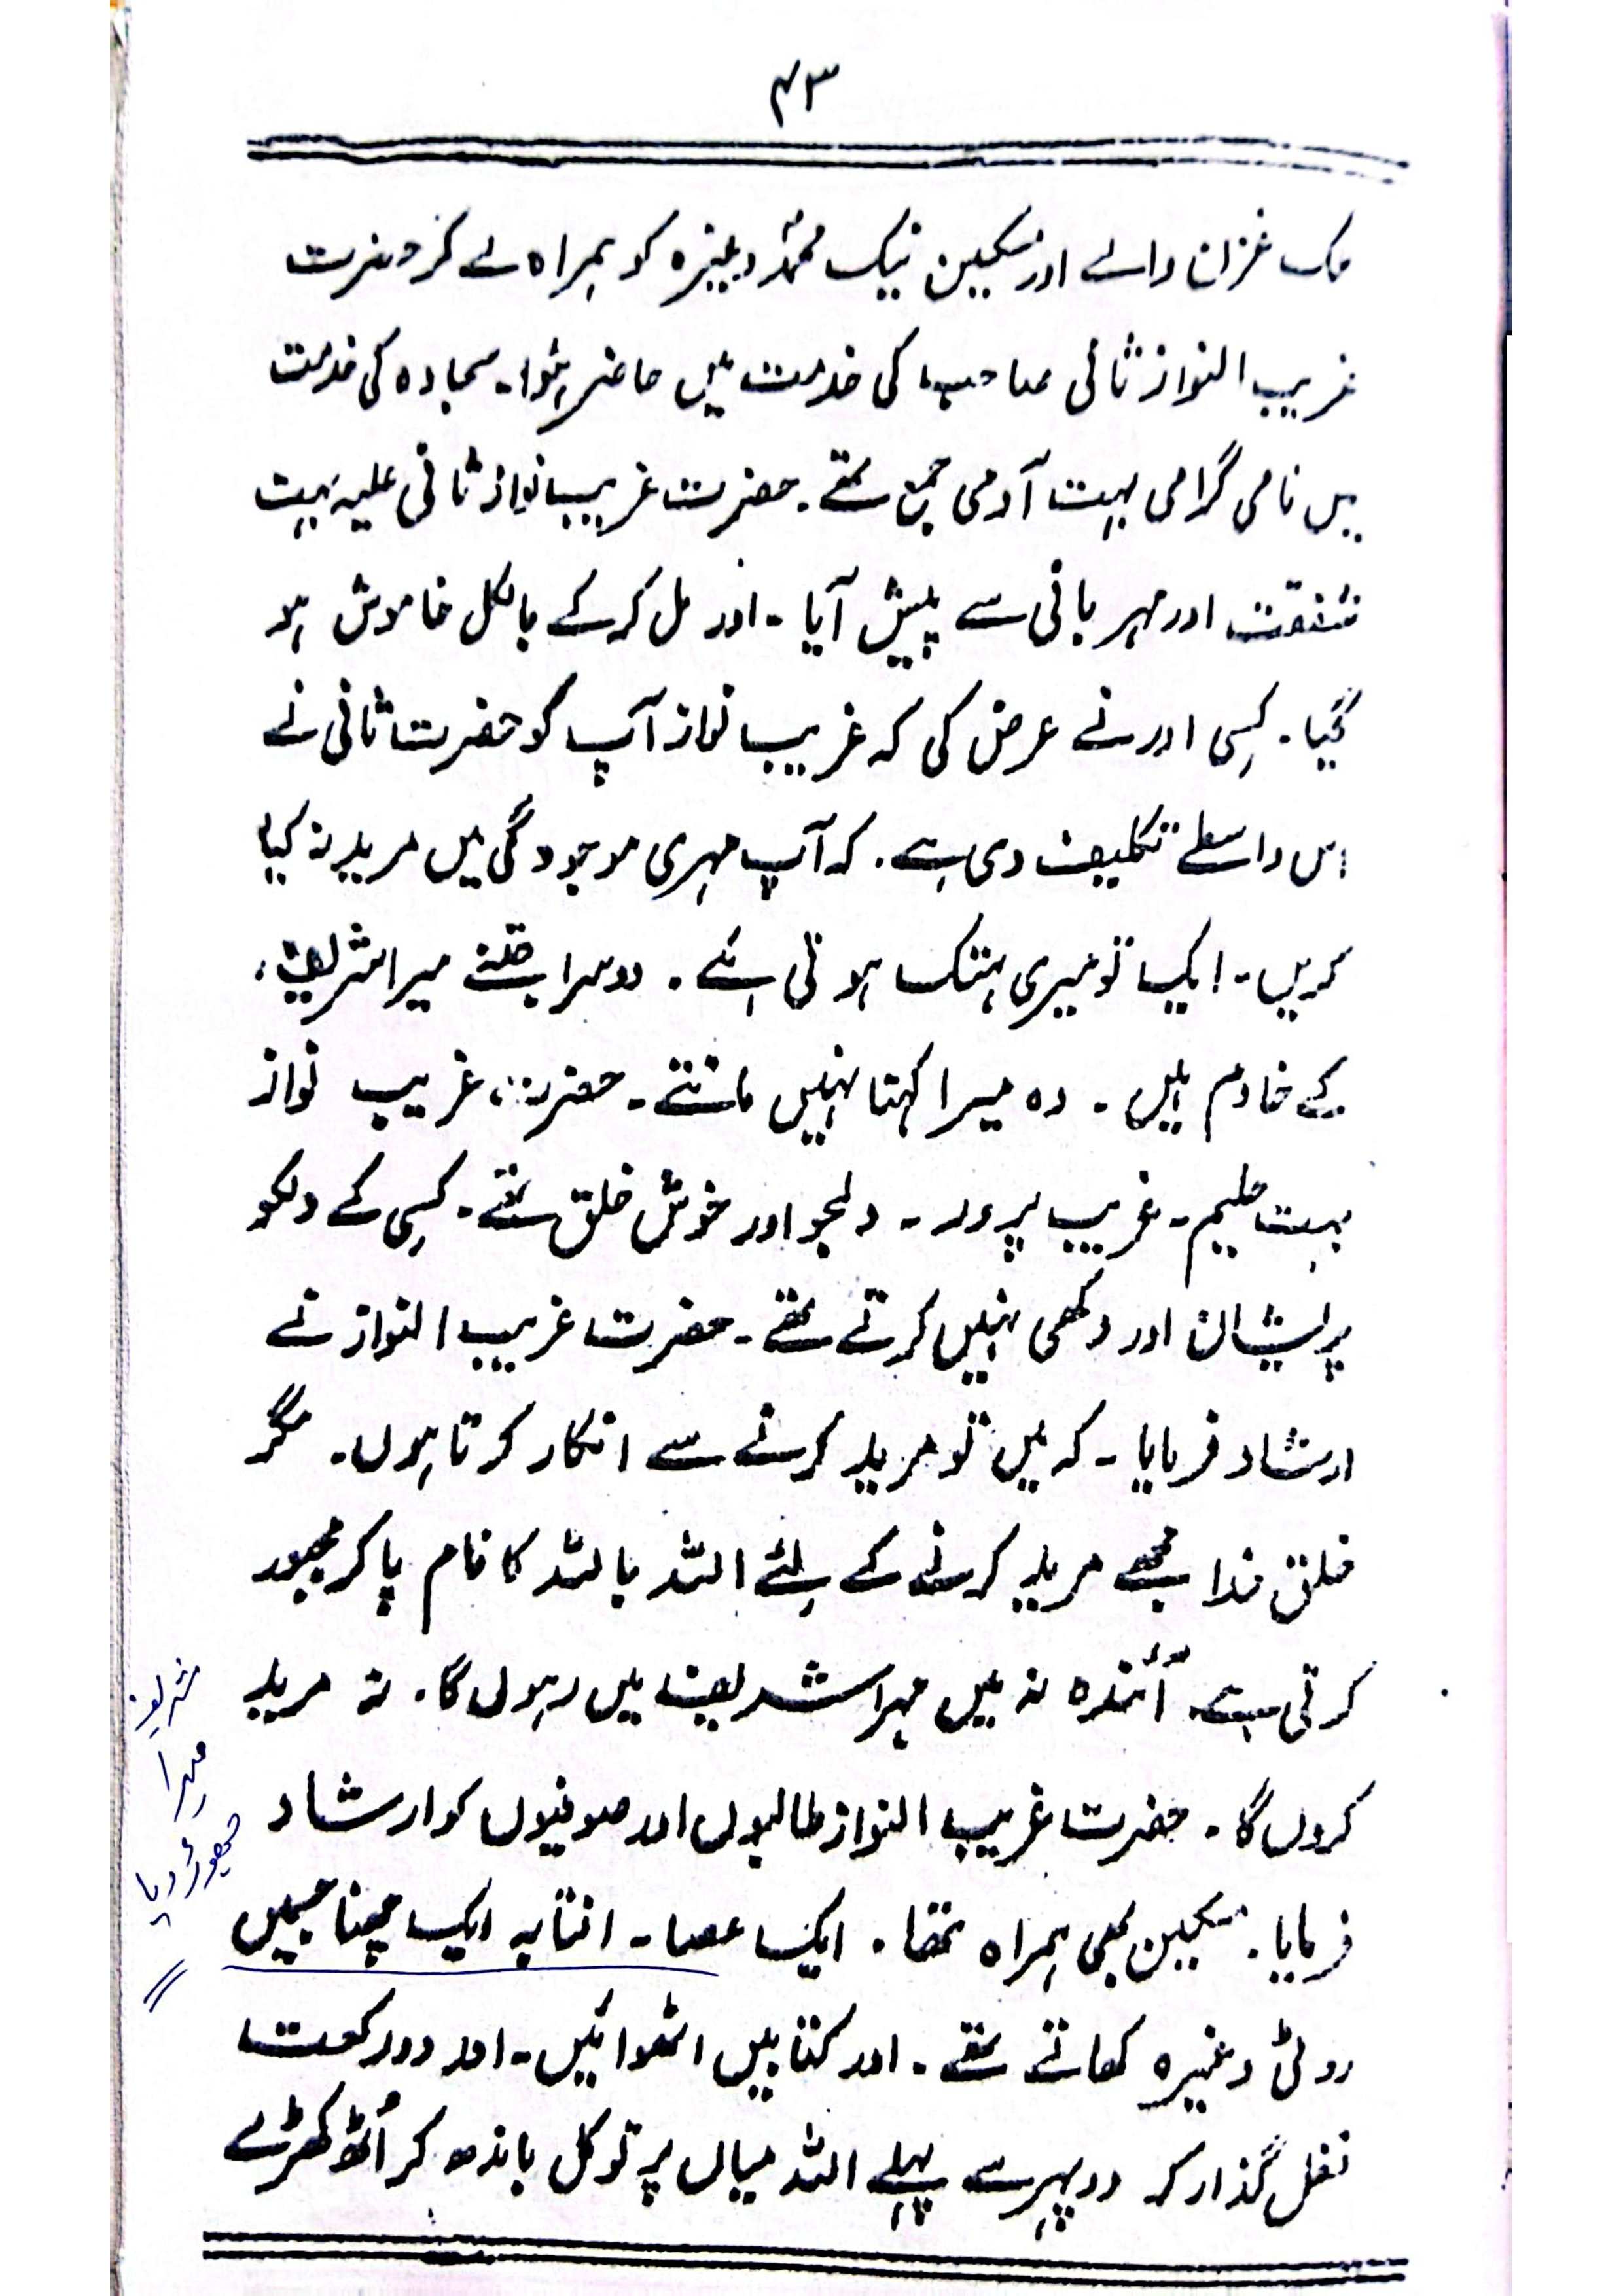 ۴۳
غزان والے اور مسکین نیک محمدؐ وغیرہ کو ہمراہ لے کر حضرت
غریب النواز ثانی صاحب کی خدمت میں حاضر ہؤا۔ سجادہ کی خدمت
میں نامی گرامی بہت آدمی جمع تھے۔ حضرت غریب نواز ثانی علیہ بہت
شفقت اور مہربانی سے پیش آیا۔ اور مل کر کے بالکل خاموش ہو
گیا۔ کِسی اور نے عرض کی کہ غریب نواز آپ کو حضرت ثانی نے
اس واسطے تکلیف دی ہے۔ کہ آپ مہری موجودگی میں مرید نہ کیا
کریں۔ ایک تو میری ہتک ہوتی ہے۔ دوسرا جتنے میرا شریف
کے خادم ہیں۔ وہ میرا کہنا نہیں مانتے۔ حضرت غریب نواز
بہت حلیم۔ غریب پرور۔ دلجو اور خوش خلق تھے۔ کسِی کے دلکو
پریشان اور دکھی نہیں کرتے تھے۔ حضرت غریب النواز نے
ارشاد فرمایا۔ کہ میں تو مرید کرنے سے انکار کرتا ہوں۔ مگر
خلق خدا مجھے مرید کرنے کے لِئے اللہ باللہ کا نام پا کر مجبور
کرتی ہے۔ آئندہ نہ میں میرا شریف میں رہوں گا۔ نہ مرید
کروں گا۔ حضرت غریب النواز طالبوں اور صوفیوں کو ارشاد
فرمایا۔ مسکین بھی ہمراہ تھا۔ ایک عصا۔ انتابہ ایک چھنا جسمیں
روٹی وغیرہ کھاتے تھے۔ اور کتابیں اٹھوائیں۔ اور دو رکعت
نفل گذار کر دوپہر سے پہلے اللہ میاں پر توکل باندھ کر اُٹھ کھڑے
شریف
میرا
چھوڑ دیا